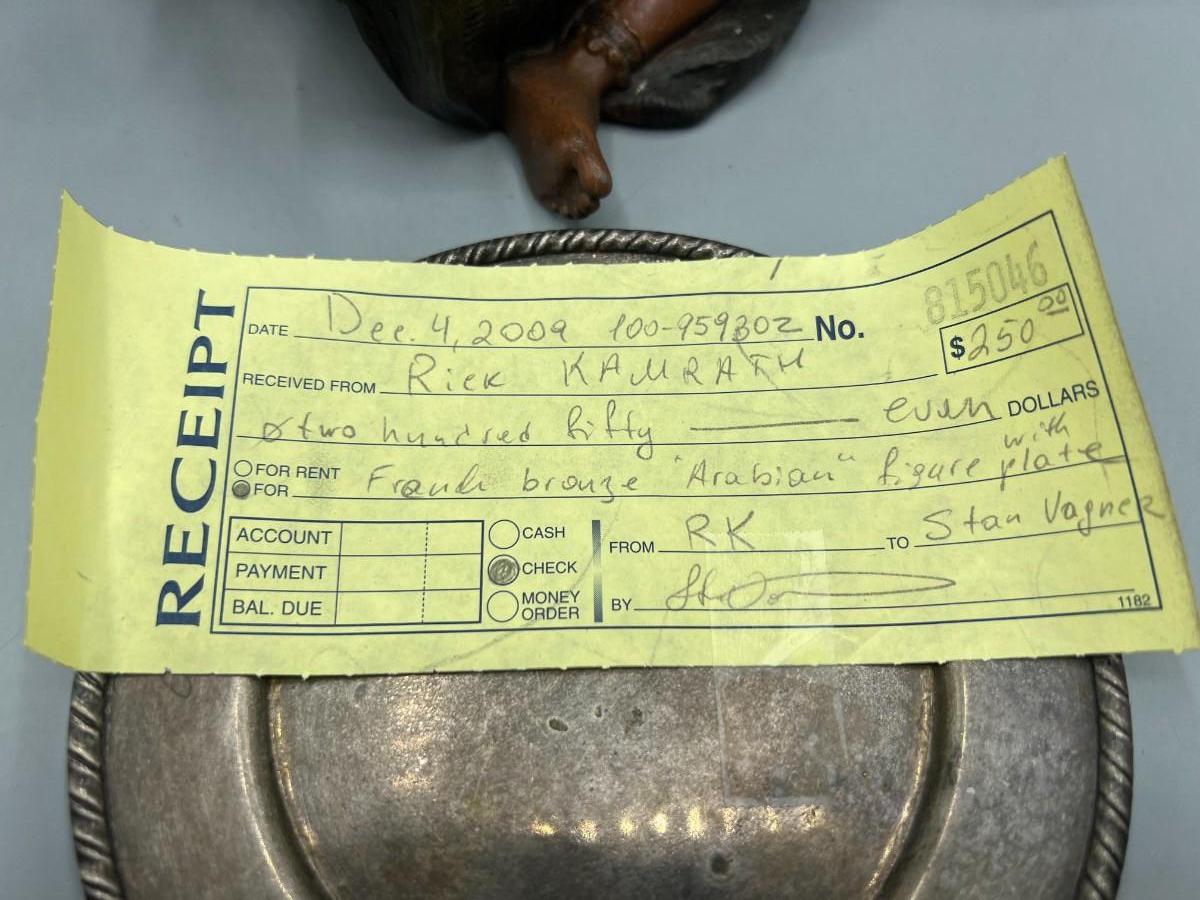 RECEIPT
815046
DATE Dec. 4, 2009 100-959302 No.
$250.00
RECEIVED FROM Rick KAMRATH
two hundred fifty —— even DOLLARS
FOR RENT
with
FOR French bronze "Arabian" figure plate
ACCOUNT
PAYMENT
BAL. DUE
CASH
CHECK
MONEY ORDER
FROM RK TO Stan Vagner
BY
1182